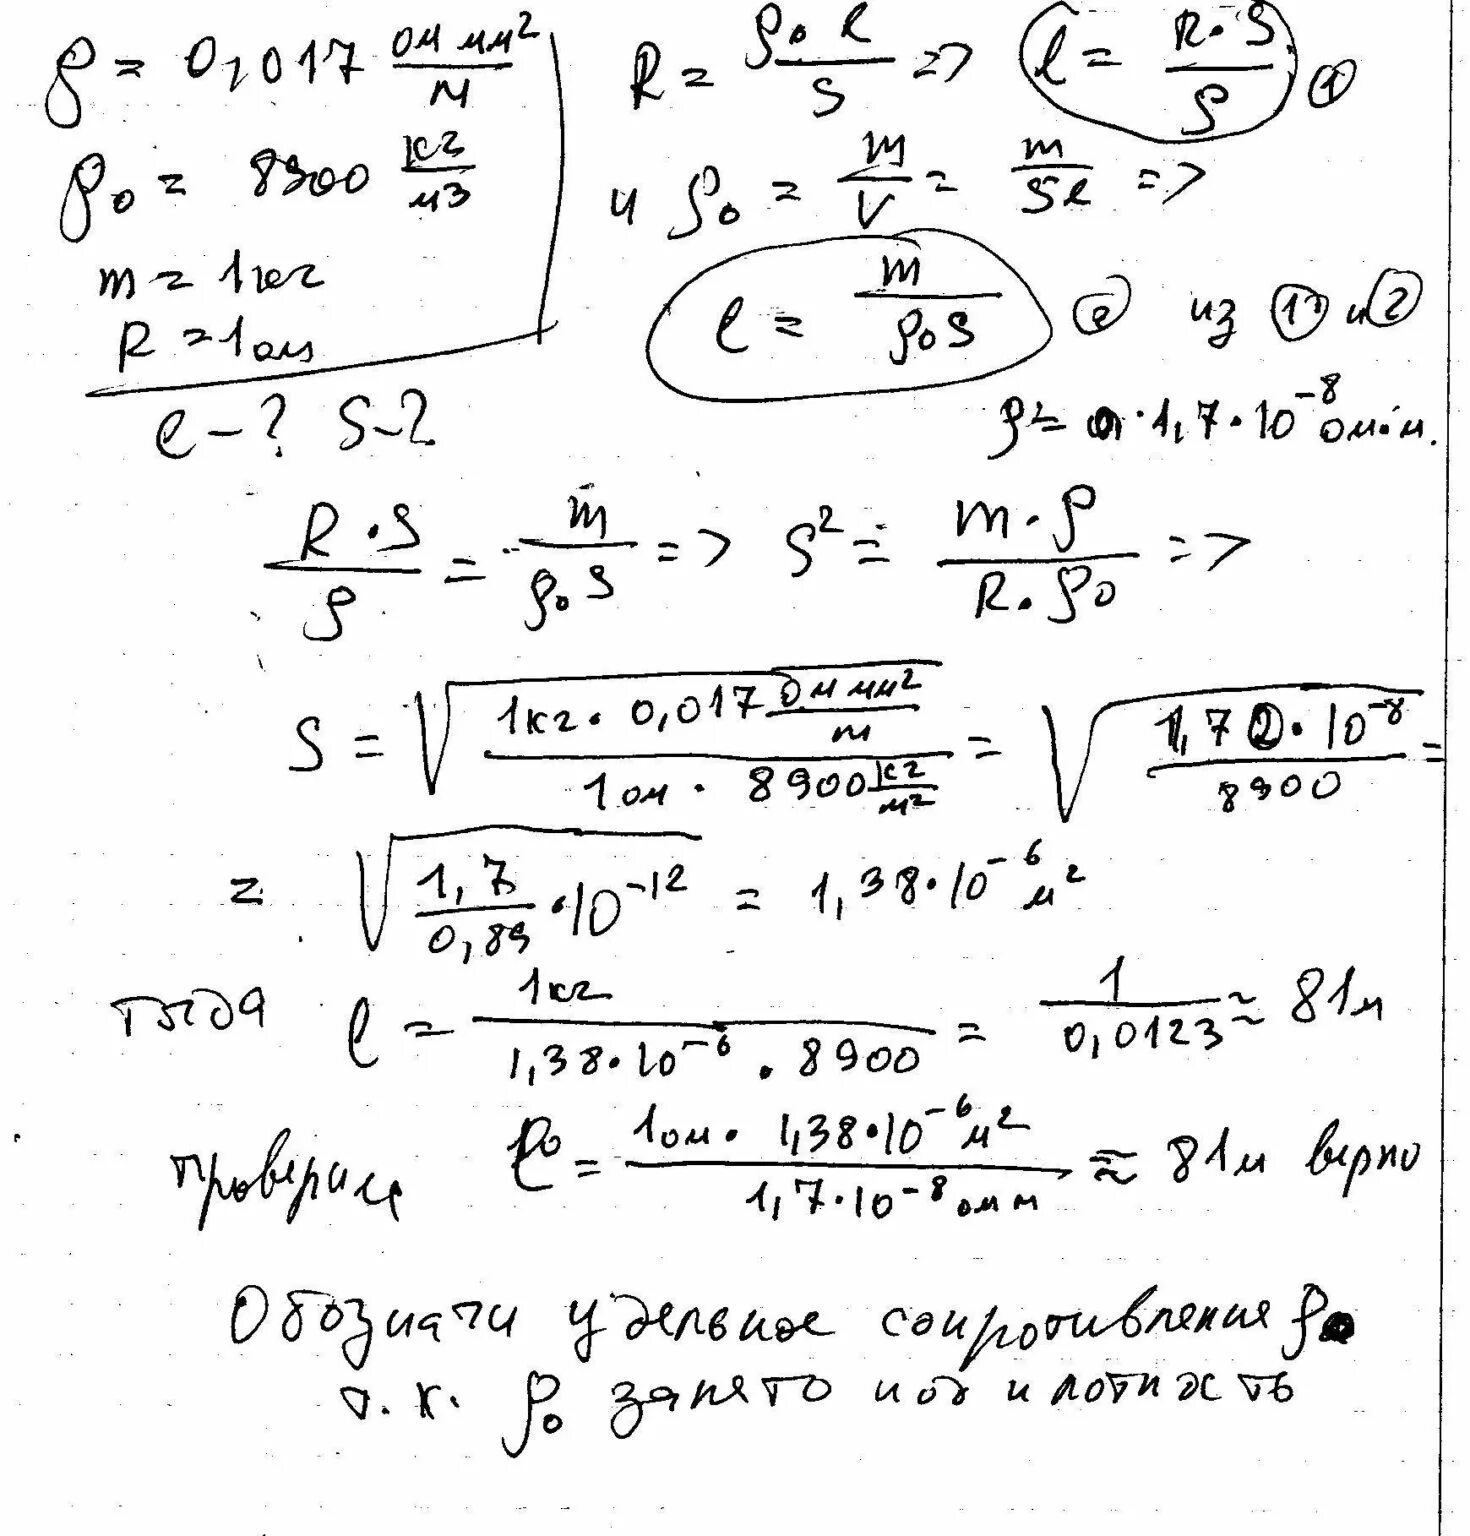 ρ = 0,017 ом мм²/м
ρ₀ = 8900 кг/м3
m = 1кг
R = 1ом
l - ? S - ?
R = ρ₀ l/S => l = R·S/ρ ①
и ρ₀ = m/V = m/Sl =>
l = m/ρ₀S ② из ① и ②
ρ = 1,7·10⁻⁸ ом·м.
R·S/ρ = m/ρ₀S => S² = m·ρ/R·ρ₀ =>
S = √(1кг · 0,017 ом мм²/м / 1ом · 8900 кг/м²) = √(1,7 · 10⁻⁸/8900) =
= √(1,7/0,89 · 10⁻¹²) = 1,38·10⁻⁶ м²
тогда l = 1кг/1,38·10⁻⁶ · 8900 = 1/0,0123 ≈ 81м
проверим l = 1ом · 1,38·10⁻⁶м²/1,7·10⁻⁸ омм ≈ 81м верно
Обозначи удельное сопротивление ρ
т.к. ρ₀ занято под плотность